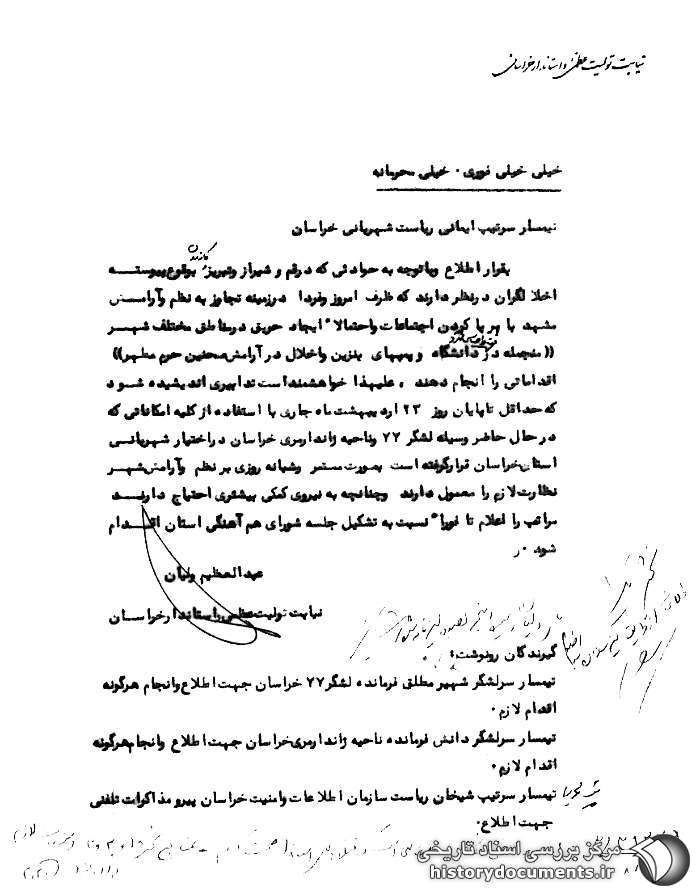 نیابت تولیت عظمی و استاندار خراسان
خیلی خیلی فوری . خیلی محرمانه
تیمسار سرتیپ ایمانی ریاست شهربانی خراسان
بقرار اطلاع وباتوجه به حوادثی که درقم و شیراز وتبریز بوقوع پیوسته
اخلا لگران درنظر دارند که ظرف امروز وفردا درزمینه تجاوز به نظم وآرامش
مشهد با بر پا کردن اجتماعات واحتمالا" ایجاد حریق درمناطق مختلف شهر
(( منجمله در دانشگاه وبمبهای بنزین واخلال در آرامش صحنین حرم مطهر))
اقداماتی را انجام دهند ، علیهذا خواهشمنداست تدابیری اندیشیده شود
که حداقل تاپایان روز ۲۳ اردیبهشت ماه جاری با استفاده از کلیه امکاناتی که
در حال حاضر وسیله لشگر ۷۷ وناحیه ژاندارمری خراسان دراختیار شهربانی
استان خراسان قرارگرفته است بصورت مستمر وشبانه روزی بر نظم وآرامش شهر
نظارت لازم را معمول دارند وچنانچه به نیروی کمکی بیشتری احتیاج دارند
مراتب را اعلام تا فورا" نسبت به تشکیل جلسه شورای هم آهنگی استان اقدام
شود .
عبدالعظیم ولیان
نیابت تولیت عظمی واستاندار خراسان
گیرندگان رونوشت:
تیمسار سرلشگر شهیر مطلق فرمانده لشگر۷۷ خراسان جهت اطلاع وانجام هرگونه
اقدام لازم .
تیمسار سرلشگر دانش فرمانده ناحیه ژاندارمری خراسان جهت اطلاع وانجام هرگونه
اقدام لازم .
تیمسار سرتیپ شیخان ریاست سازمان اطلاعات وامنیت خراسان پیرو مذاکرات تلفنی
جهت اطلاع .
مرکز بررسی اسناد تاریخی
historydocuments.ir